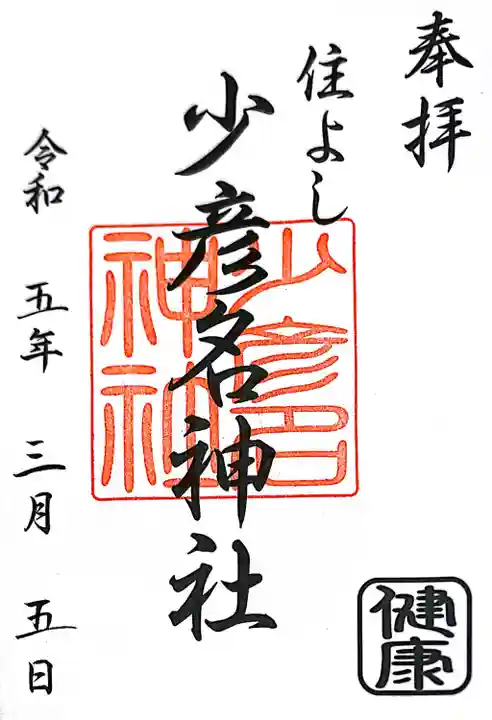 奉拝
住よし
少彦名神社
少彦名
神社
令和 五年 三月 五日
健康